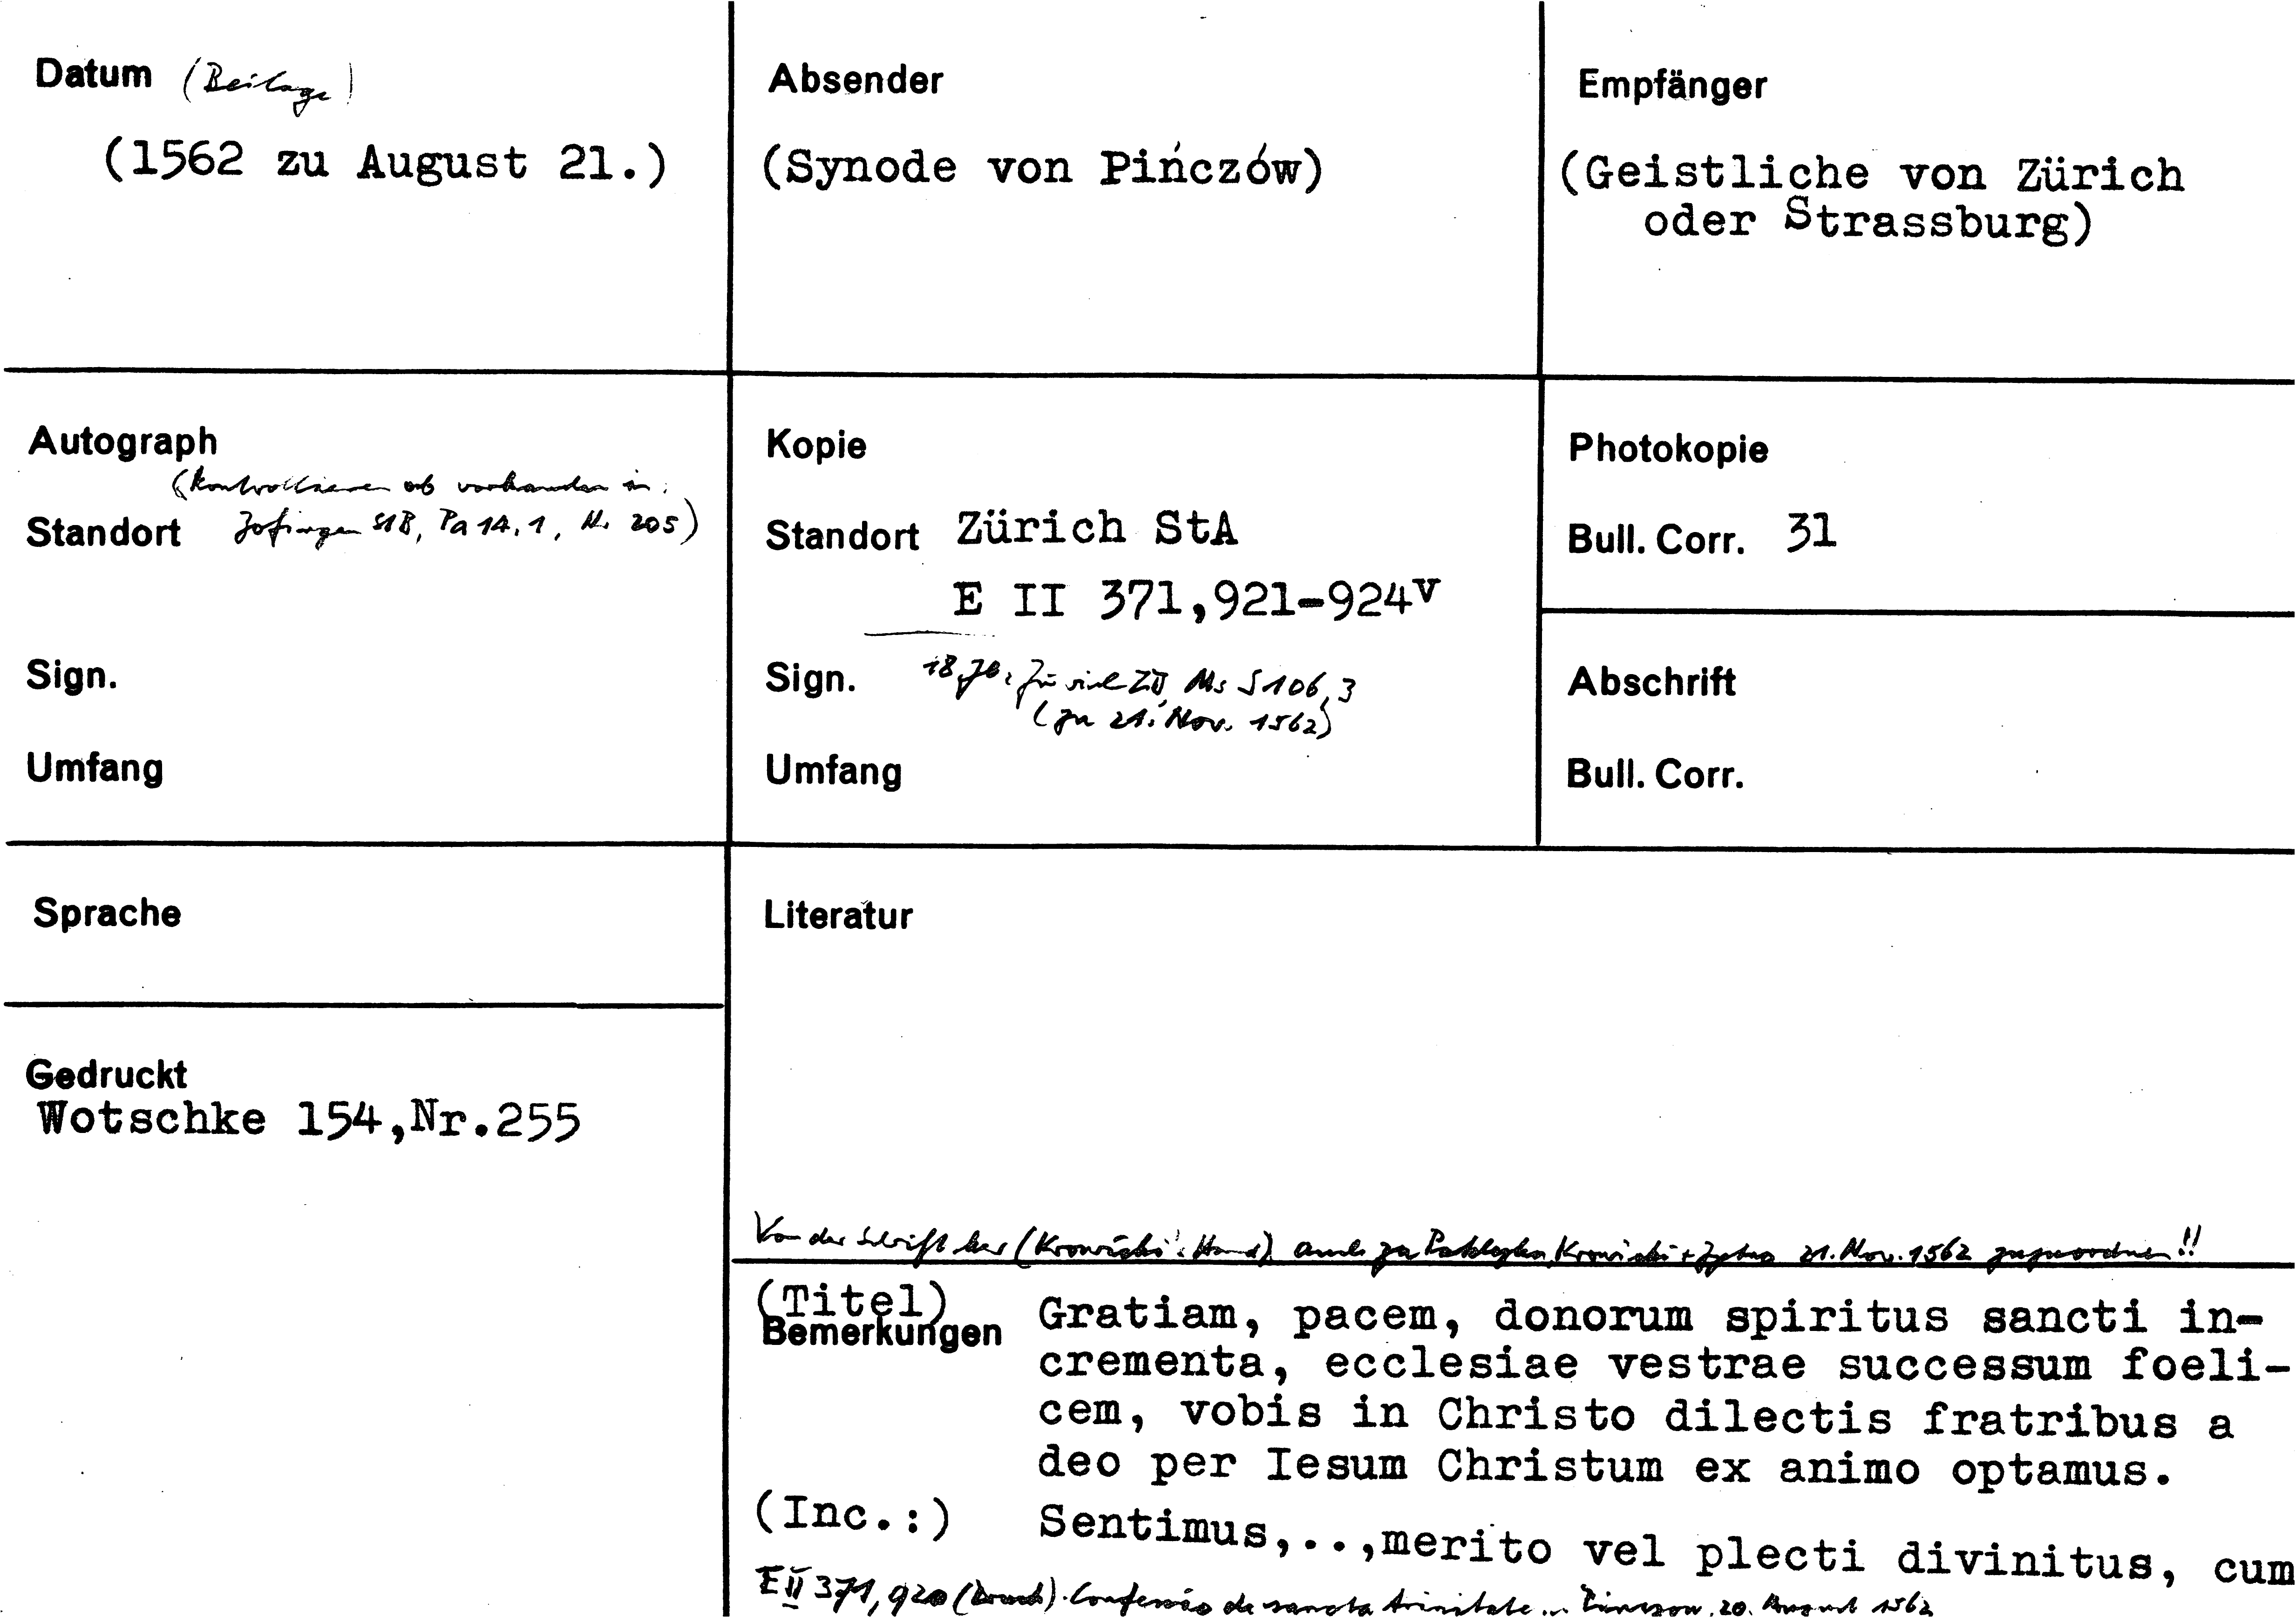 Datum (Beilage)
(1562 zu August 21.)
Absender
(Synode von Pińczów)
Empfänger
(Geistliche von Zürich
oder Strassburg)
Autograph
(Kontrollieren ob vorhanden in:
Standort Zofingen StB, Pa 14.1, Nr. 205)
Sign.
Umfang
Kopie
Standort Zürich StA
E II 371,921-924v
Sign. 18. Jh.: Zürich ZB, Ms S 106, 3
(zu 21. Nov. 1562)
Umfang
Photokopie
Bull. Corr. 31
Abschrift
Bull. Corr.
Sprache
Gedruckt
Wotschke 154,Nr.255
Literatur
Von der Schrift her (Krowicki's Hand) auch zu Krowicki + 21. Nov. 1562 zuzuordnen!!
(Titel)
Bemerkungen
Gratiam, pacem, donorum spiritus sancti in-
crementa, ecclesiae vestrae successum foeli-
cem, vobis in Christo dilectis fratribus a
deo per Iesum Christum ex animo optamus.
(Inc.:) Sentimus,..,merito vel plecti divinitus, cum
E II 371, 920 (Druck). Confessio de sancta trinitate ... Pinczow. 20. August 1562